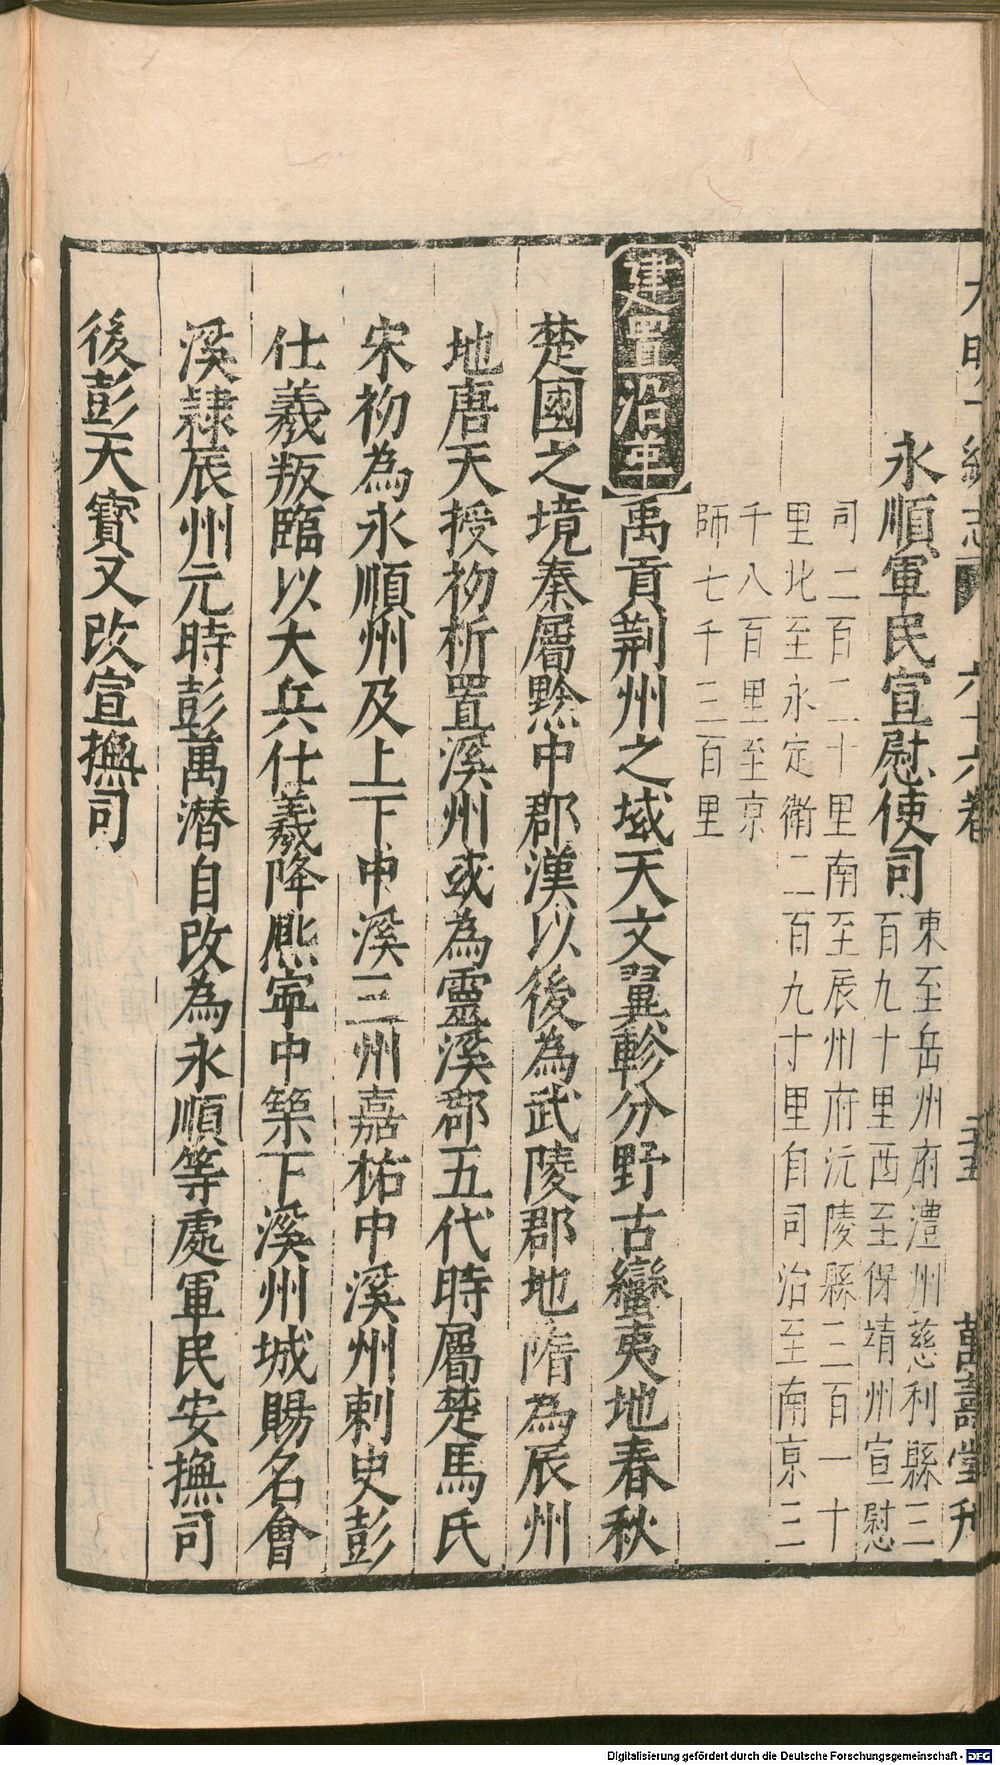 大明一統志 六十六卷 三十五 萬壽堂刊
永順軍民宣慰使司 東至岳州府澧州慈利縣三
百九十里西至保靖州宣慰
司二百二十里南至辰州府沅陵縣三百一十
里北至永定衛二百九十里自司治至南京三
千八百里至京
師七千三百里
建置沿革 禹貢荆州之域天文翼軫分野古蠻夷地春秋
楚國之境秦屬黔中郡漢以後為武陵郡地隋為辰州
地唐天授初析置溪州或為靈溪郡五代時屬楚馬氏
宋初為永順州及上下中溪三州嘉祐中溪州刺史彭
仕羲叛臨以大兵仕羲降熙寧中築下溪州城賜名會
溪隸辰州元時彭萬潜自改為永順等處軍民安撫司
後彭天寳又改宣撫司
Digitalisierung gefördert durch die Deutsche Forschungsgemeinschaft - DFG